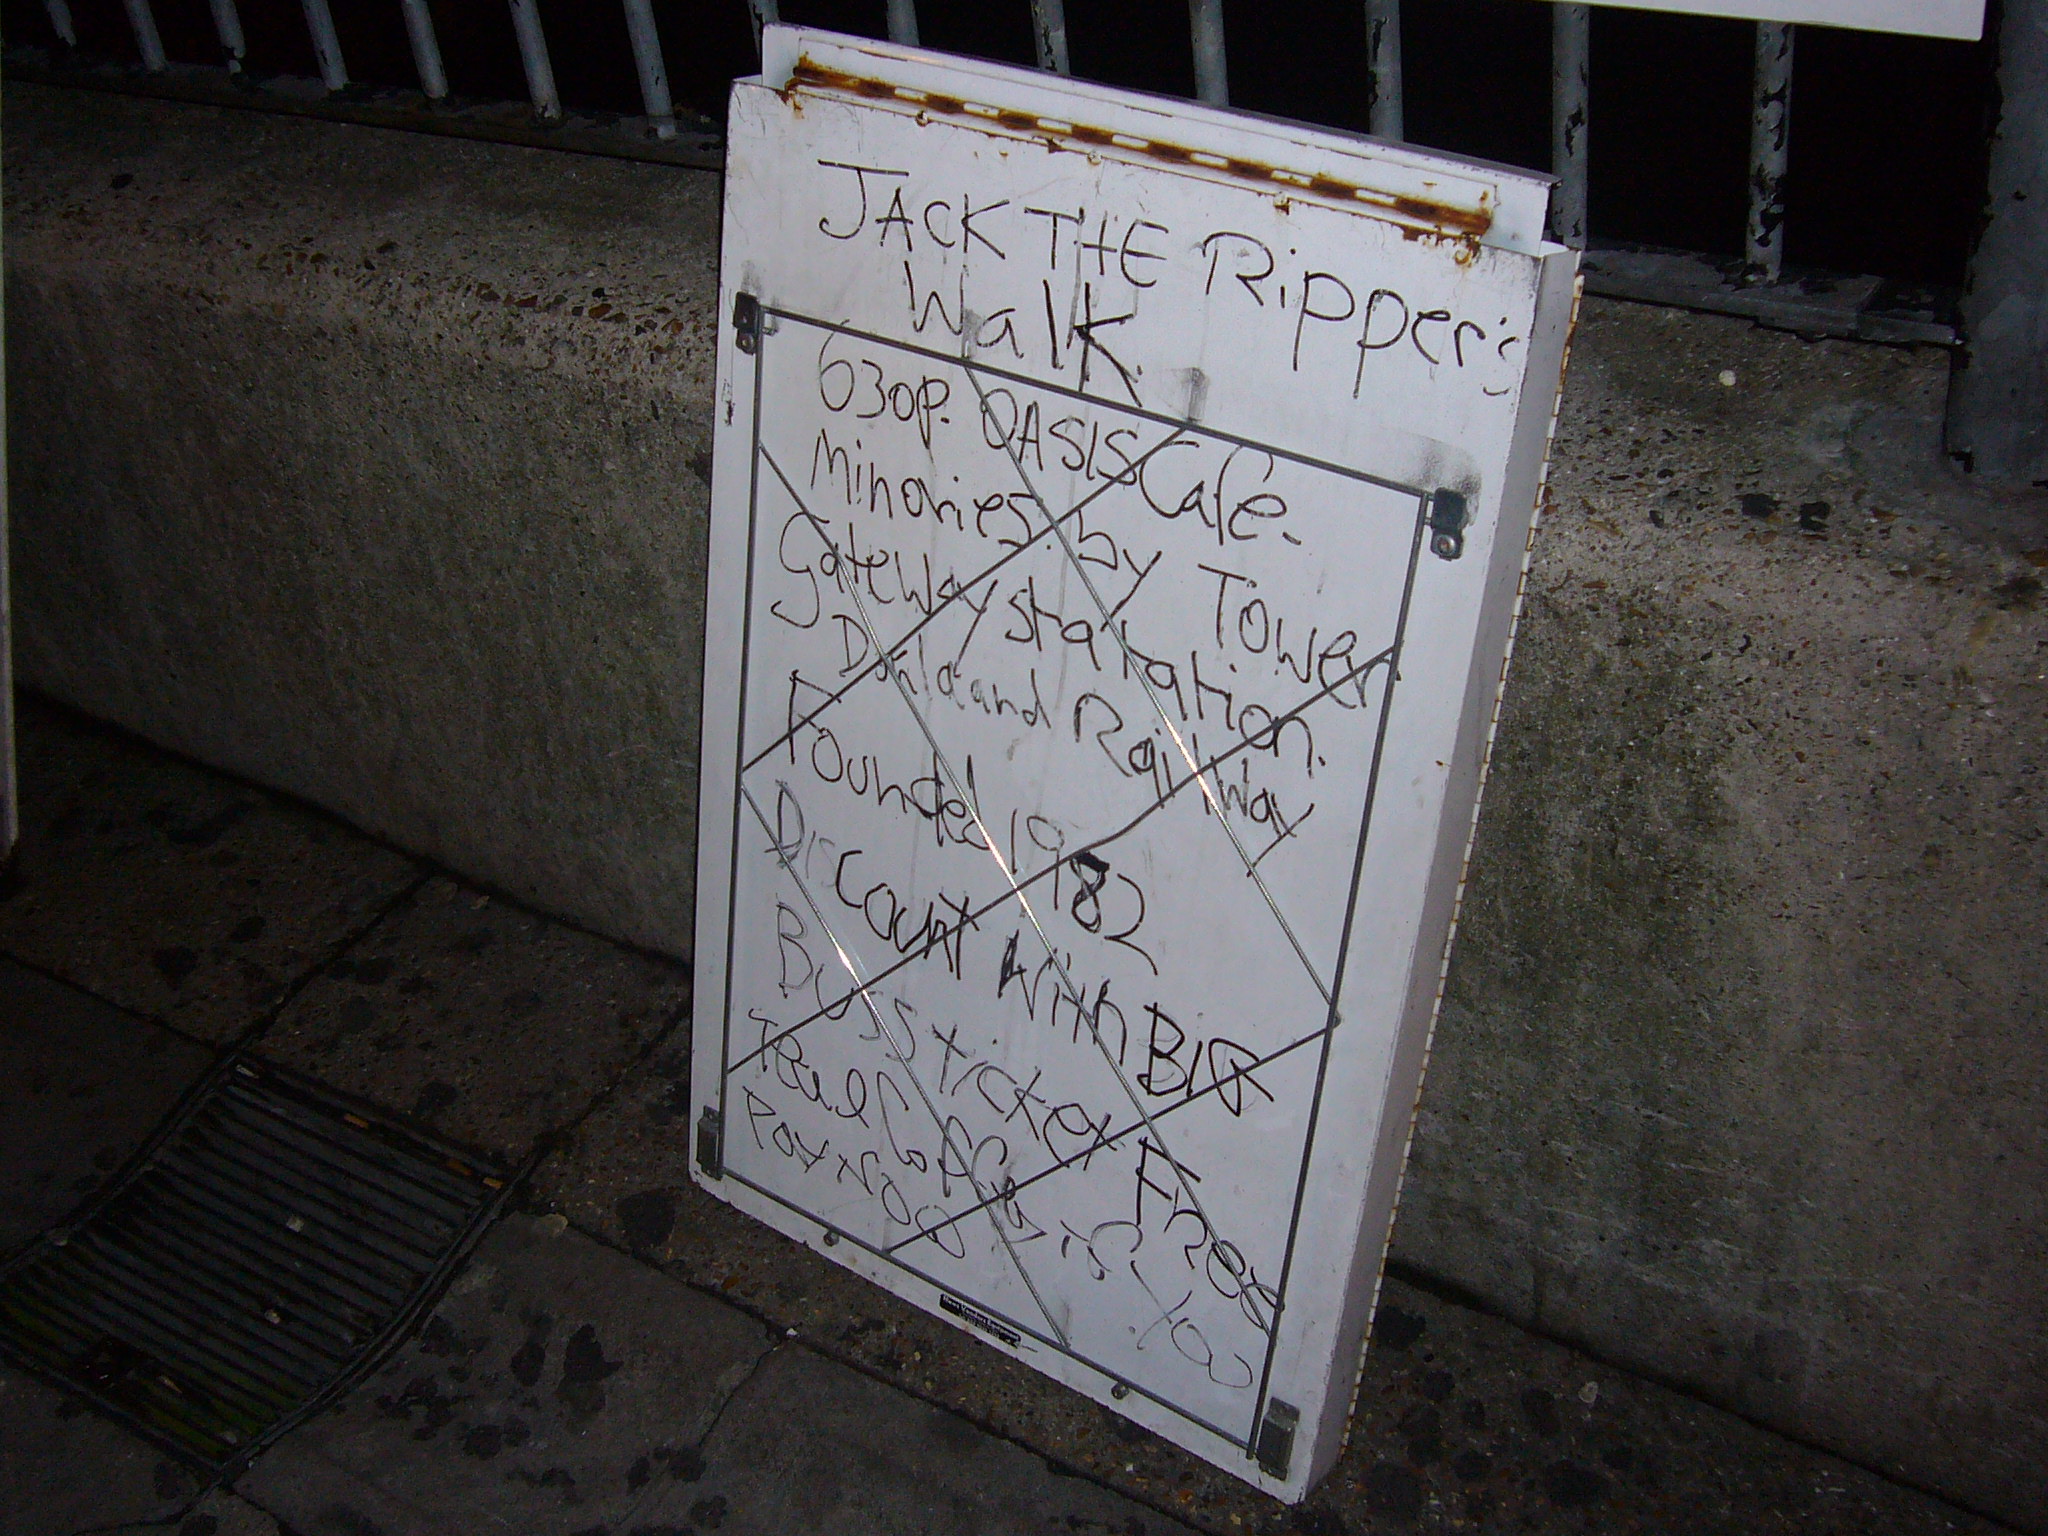 JACK THE Ripper's
Walk.
630p. OASIS Cafe-
Minories. by Tower
Gateway statation.
Railway
Founded 1982
Discount With BIG
Buss ticket From
if you